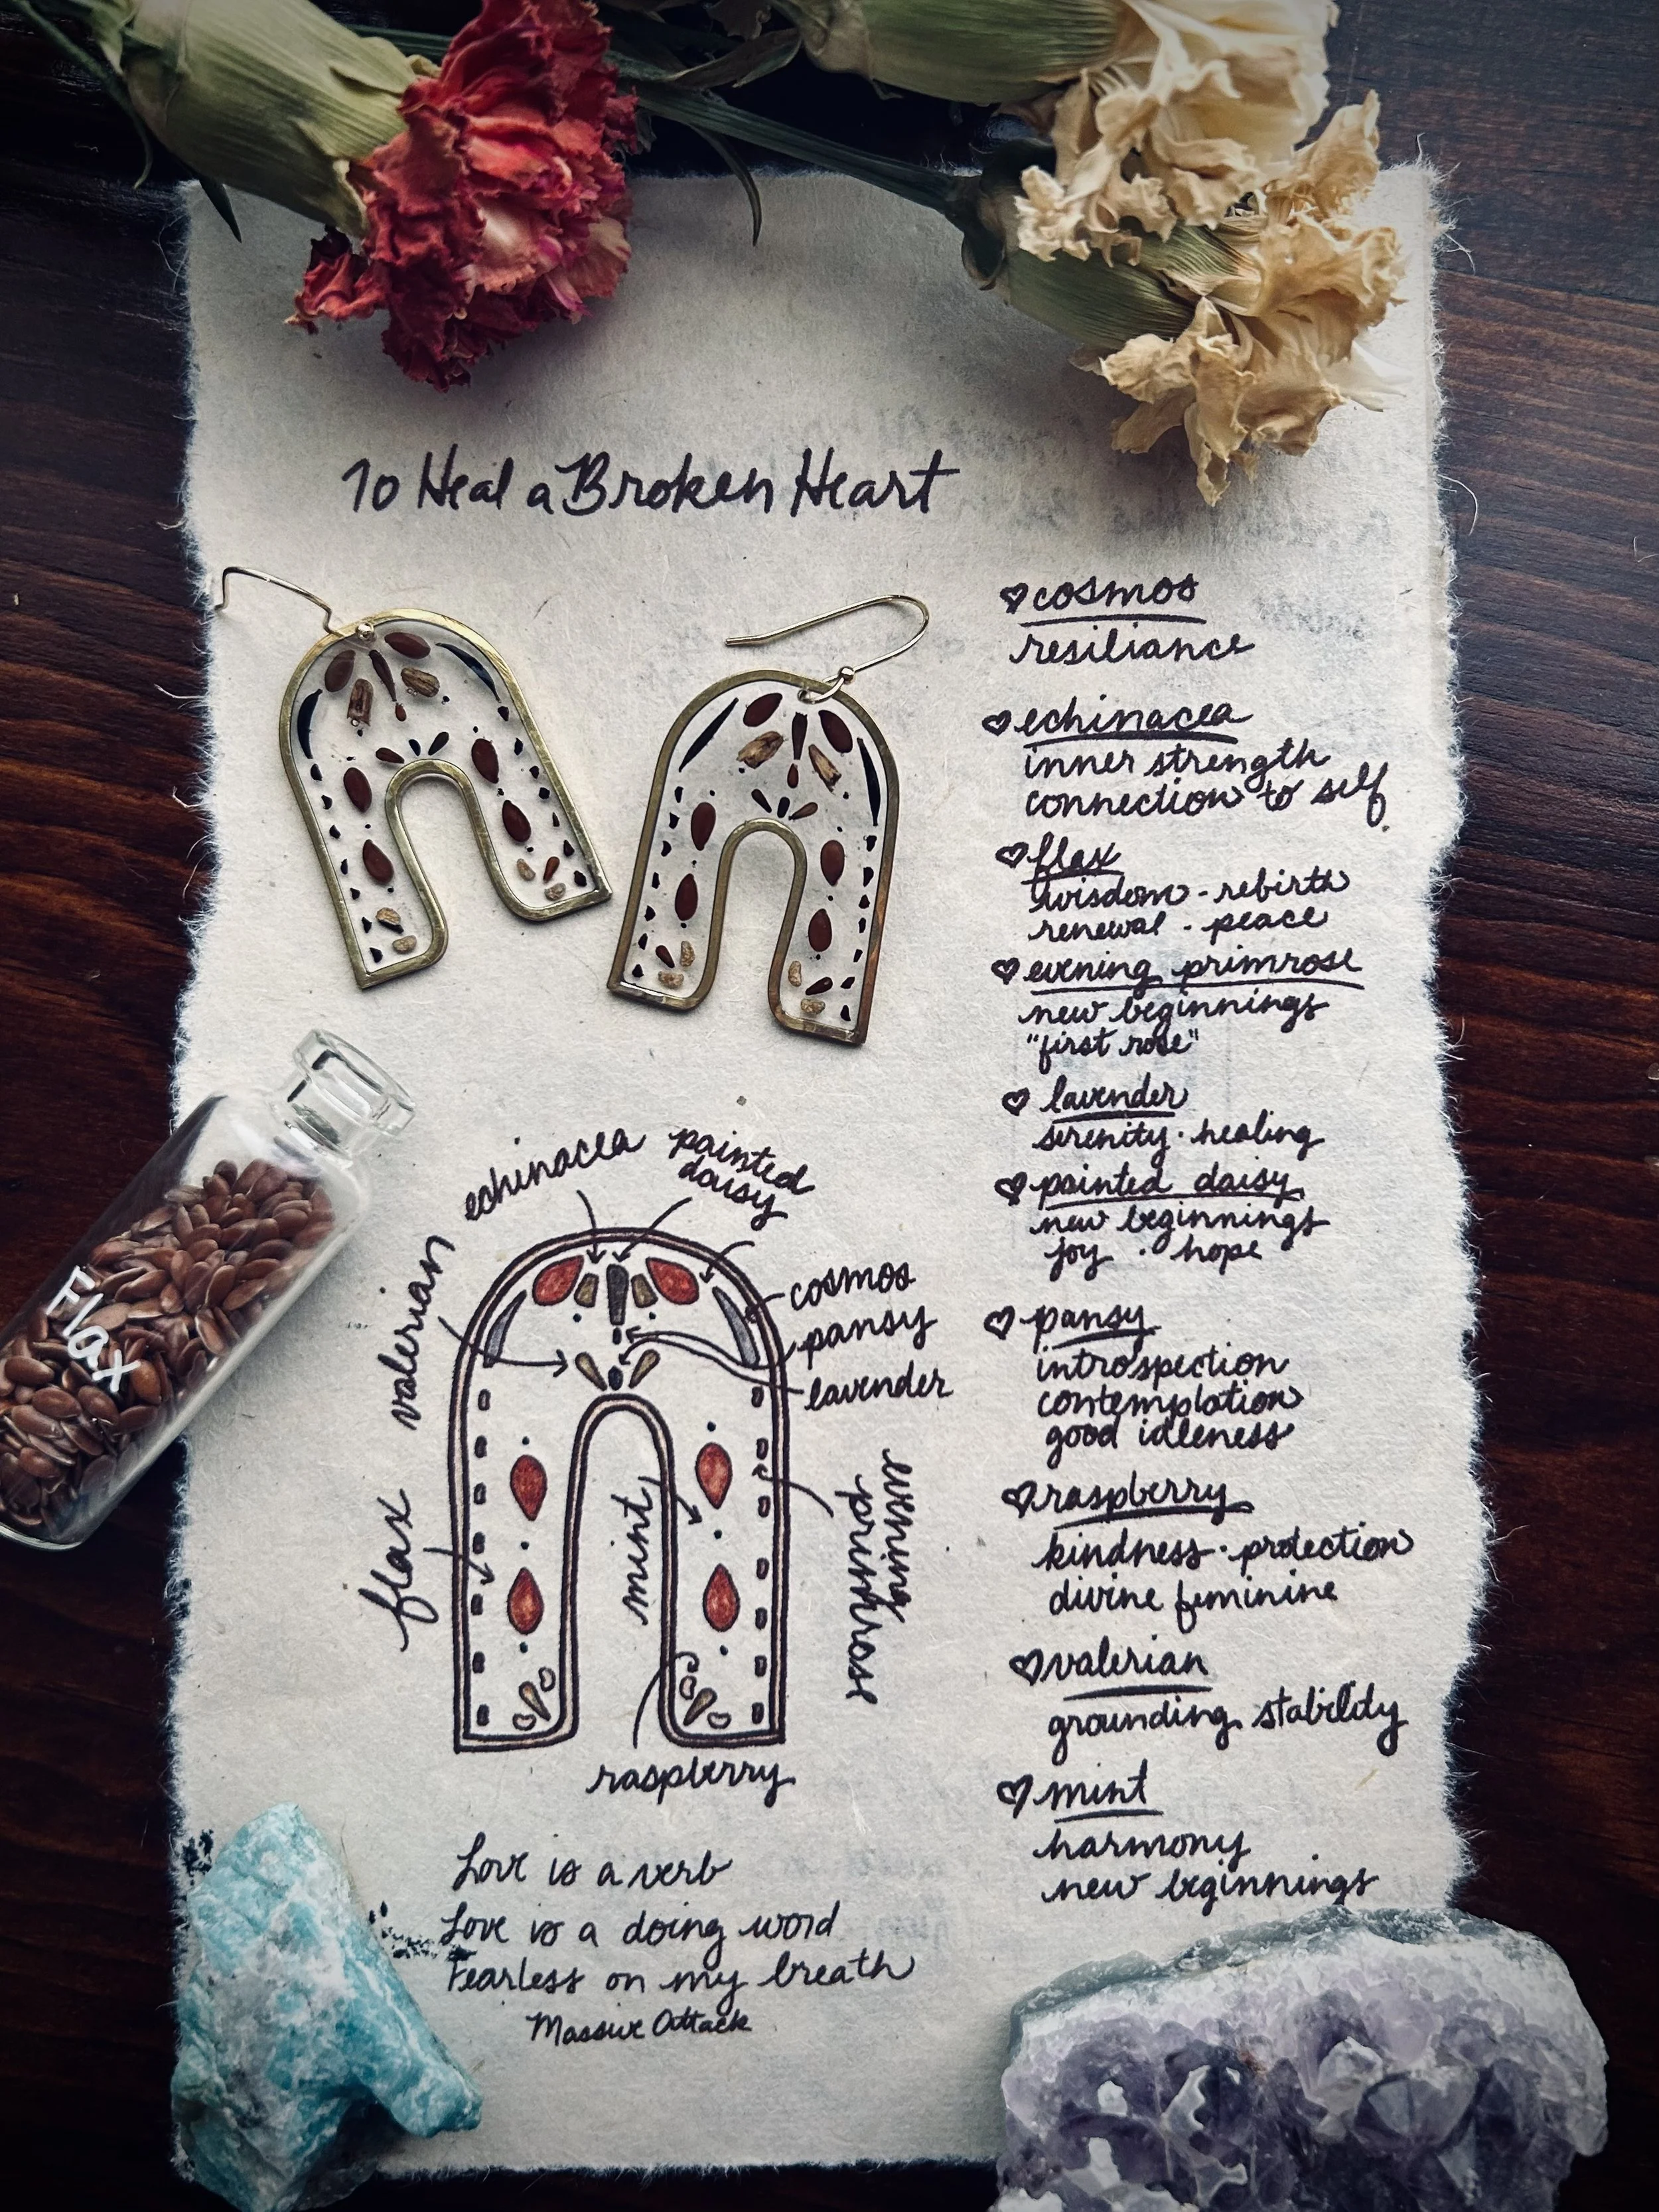 To Heal a Broken Heart
♡ cosmos
resiliance
♡ echinacea
inner strength
connection to self
♡ flax
wisdom - rebirth
renewal - peace
♡ evening primrose
new beginnings
"first rose"
♡ lavender
serenity · healing
♡ painted daisy
new beginnings
joy · hope
♡ pansy
introspection
contemplation
good idleness
♡ raspberry
kindness · protection
divine feminine
♡ valerian
grounding stability
♡ mint
harmony
new beginnings
echinacea
painted
daisy
valerian
cosmos
pansy
lavender
flax
mint
evening
primrose
raspberry
Flax
Love is a verb
Love is a doing word
Fearless on my breath
Massive Attack